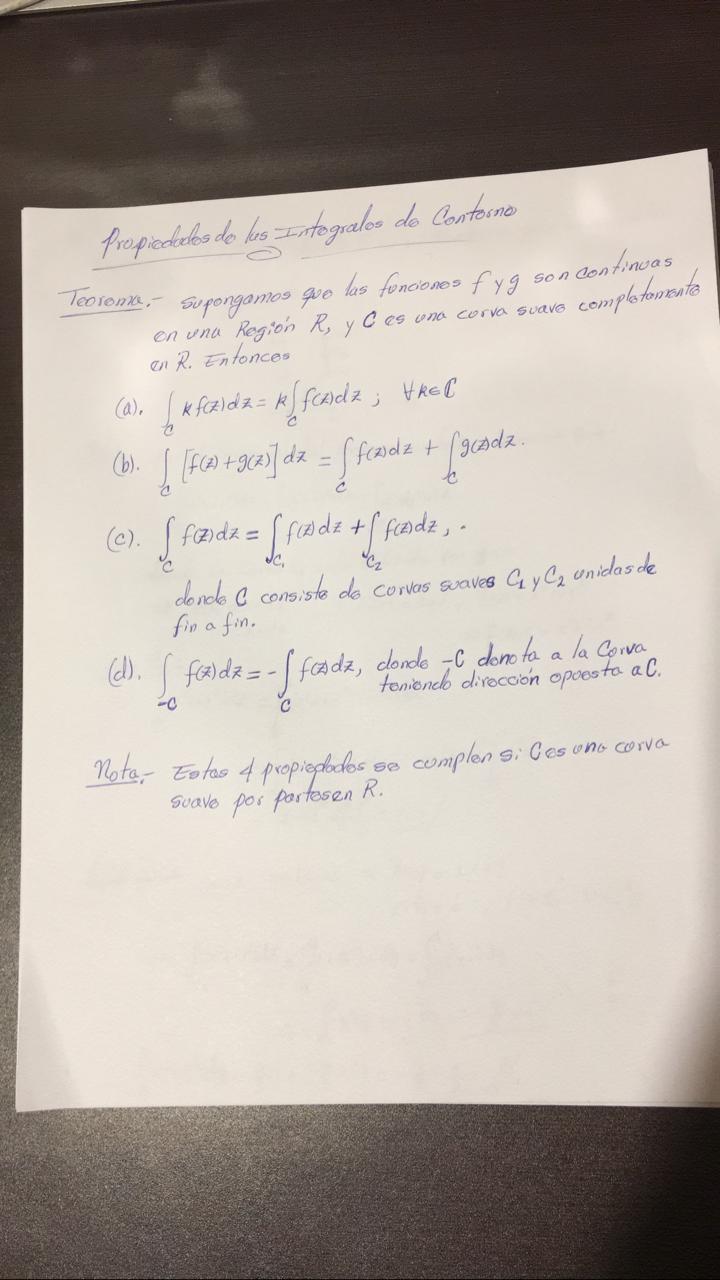 Propiedades de las Integrales de Contorno
Teorema.- Supongamos que las funciones f y g son continuas
en una Región R, y C es una curva suave completamente
en R. Entonces
(a). ∫_C k f(z)dz = k∫_C f(z)dz ; ∀k∈ℂ
(b). ∫_C [f(z)+g(z)]dz = ∫_C f(z)dz + ∫_C g(z)dz.
(c). ∫_C f(z)dz = ∫_C₁ f(z)dz + ∫_C₂ f(z)dz, .
donde C consiste de curvas suaves C₁ y C₂ unidas de
fin a fin.
(d). ∫_-C f(z)dz = -∫_C f(z)dz, donde -C denota a la Curva
teniendo dirección opuesta a C.
Nota.- Estas 4 propiedades se cumplen si C es una curva
suave por partes en R.